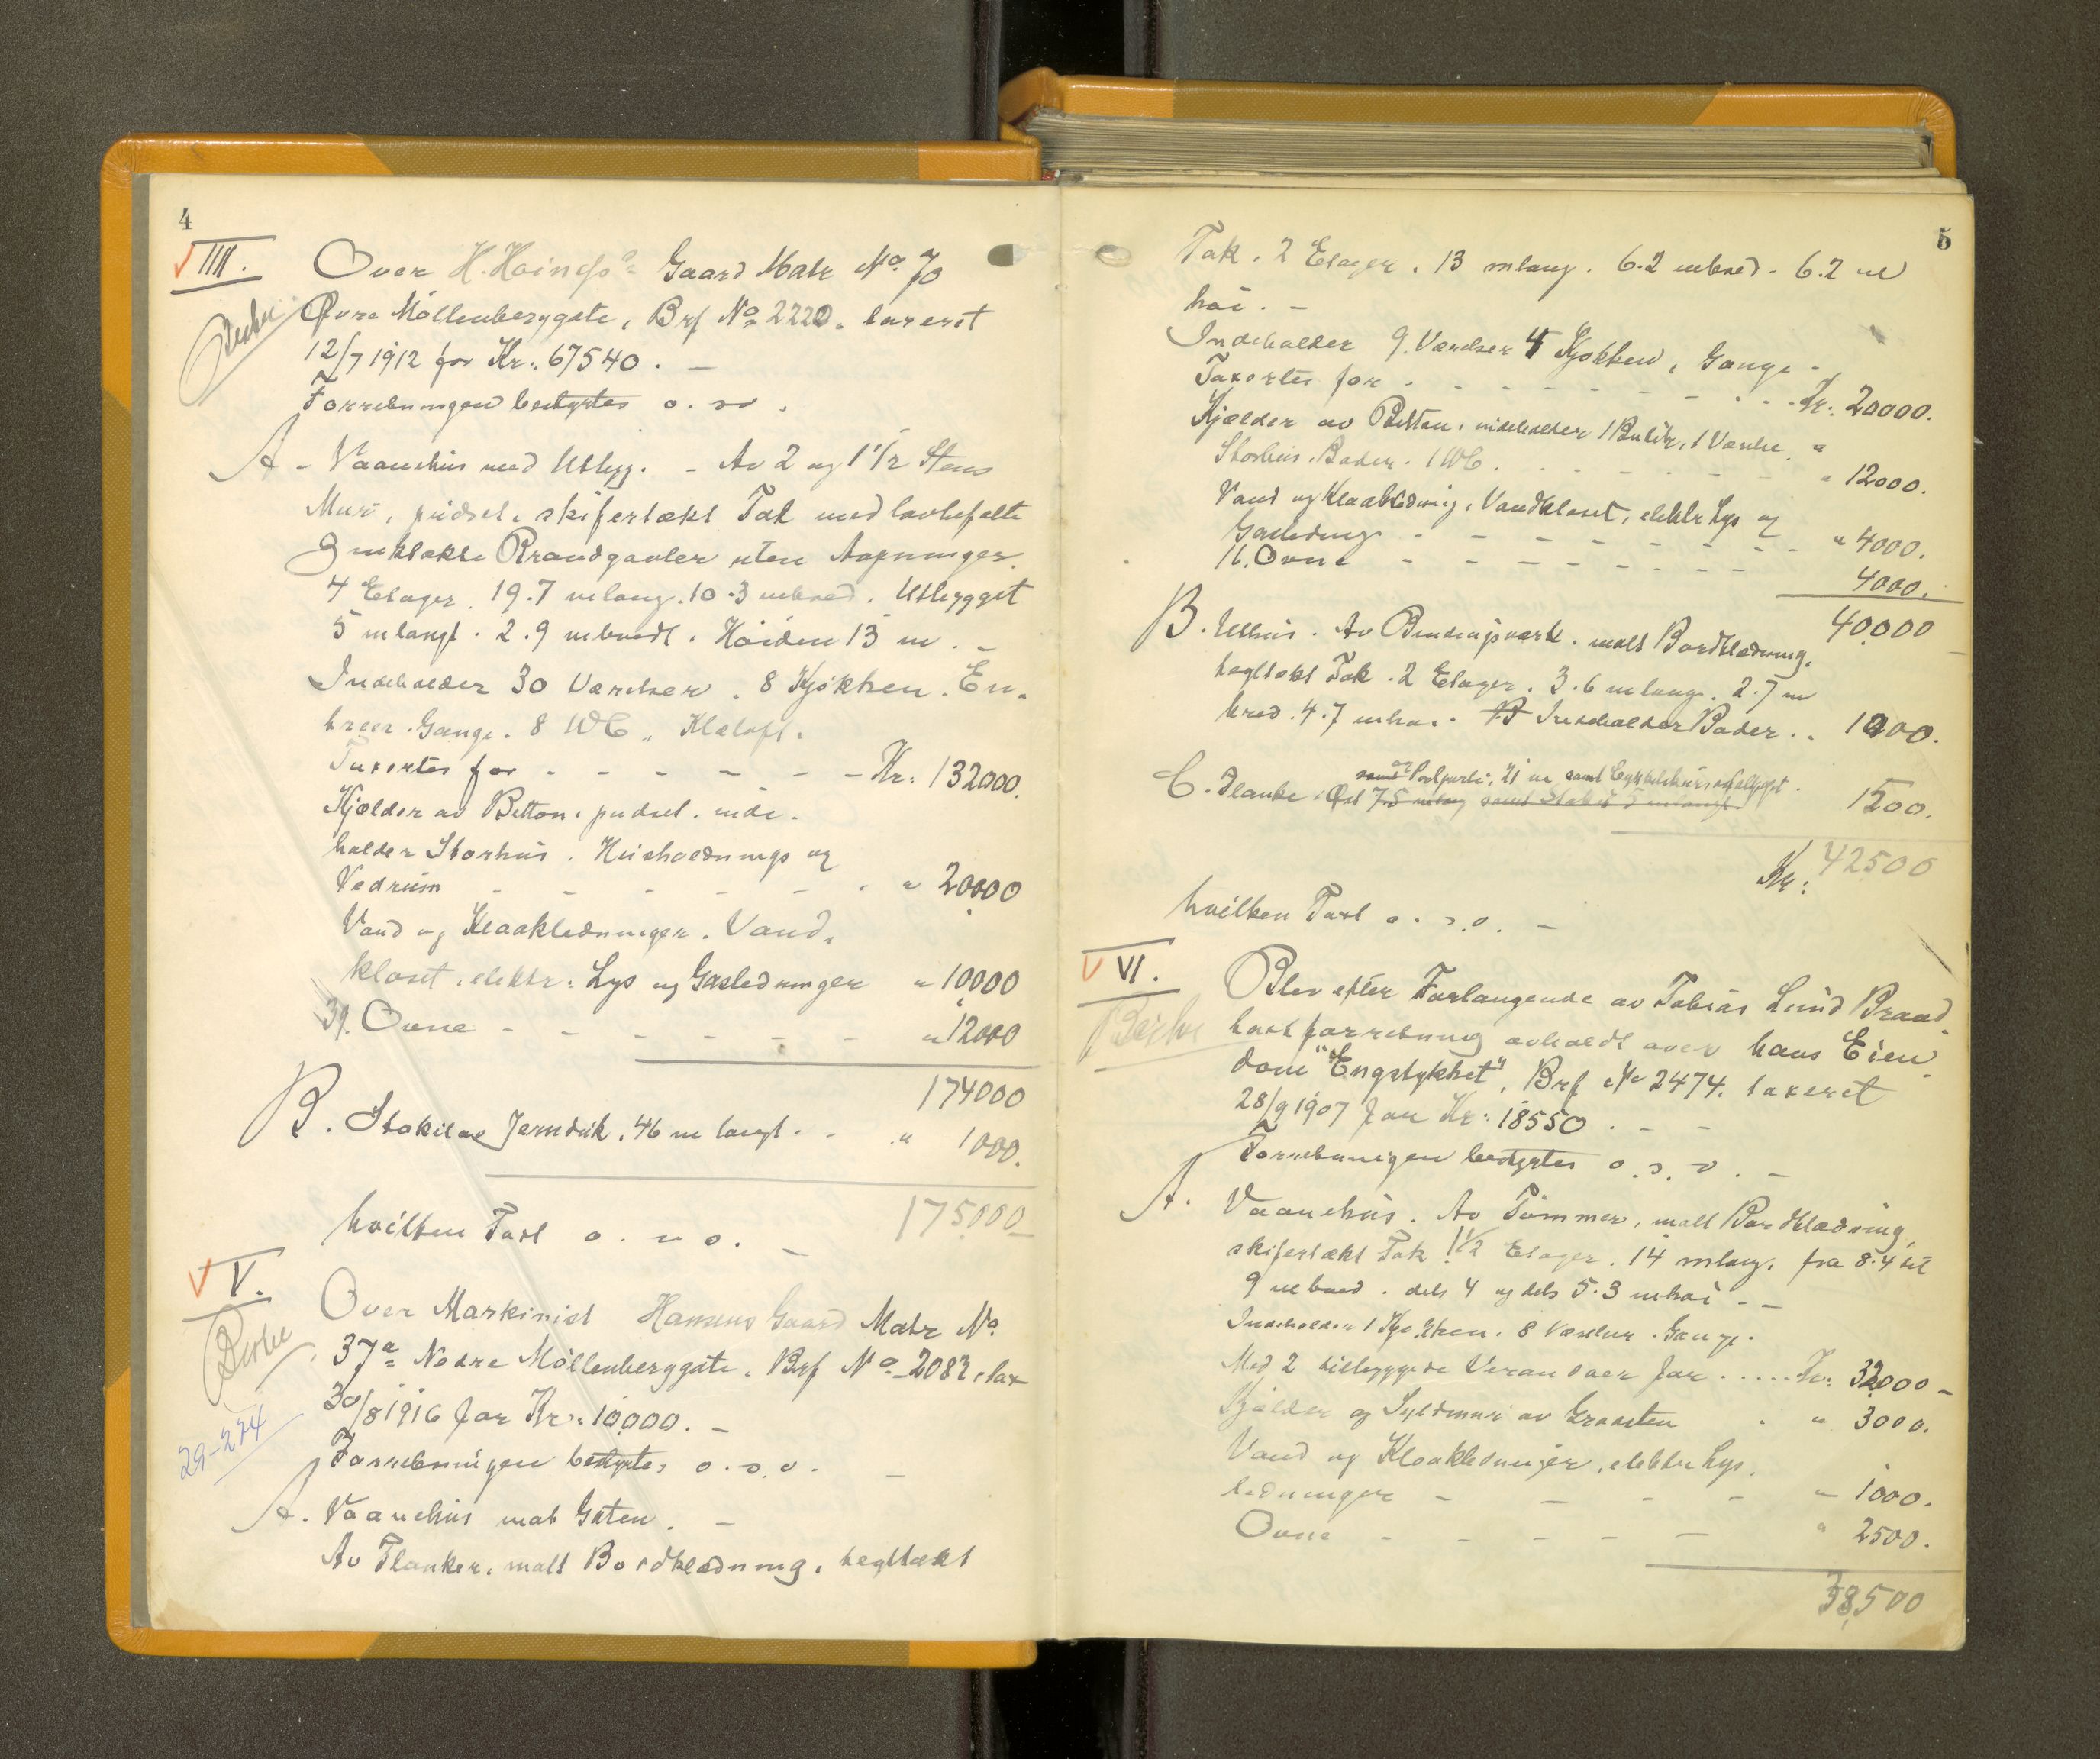 4
IIII.
Over H. Gaard Matr No 70
Øvre Möllenberggate, Brf No 2220. taxeret
12/7 1912 for Kr: 67540. –
Forretningen bestyrtes o. s. v.
A – Vaanehus med Utbyg. – Av 2 og 1 1/2 Stens
Mur, pudset, skifertækt Tak med
Brandgavler uten Aapninger.
4 Etager. 19.7 m lang. 10.3 m bred. Utbygget
5 m langt. 2.9 m bredt. Höiden 13 m. –
Indeholder 30 Værelser. 8 Kjökken. En-
treer. Gange. 8 WC. Klæloft.
Taxertes for – – – – – – Kr: 132000.
Kjælder av Betton. pudset. inde-
holder Storhus. Husholdnings og
Vedrum – – – – – " 20000
Vand og Kloakledninger. Vand-
kloset, elektr. Lys og Gasledninger " 10000
39. Ovne – – – – – " 12000
174000
B. Stakit av Jerndrik. 46 m langt. – " 1000.
175000
hvilken Taxt o. s. v. –
V.
Birke
29-274
Over Maskinist Hansens Gaard Matr No
37a Nedre Möllenberggate. Brf No 2083, tax
30/8 1916 for Kr: 10.000. –
Forretningen bestyrtes o. s. v. –
A. Vaanehus mot Gaten. –
Av Planker, malt Bordklædning, tegltækt
5
Tak. 2 Etager. 13 m lang. 6.2 m bred – 6.2 m
höi. –
Indeholder 9 Værelser 4 Kjökken, Gange –
Taxertes for – – – – – – Kr: 20000.
Kjælder av Betton, indeholder 1 Butik, 1 Værelse "
Storhus. Boder. 1 WC. – – – " 12000.
Vand og Kloakledning, Vandkloset, elektr Lys og
Gasledning – – – – – – " 4000.
16. Ovne – – – – – – 4000.
40000
B. Uthus. Av Bindingsværk. malt Bordklædning.
tegltækt Tak. 2 Etager. 3.6 m lang. 2.7 m
bred. 4.7 m höi. Indeholder Boder. . 1000.
og Portparti, 21 m samt
C. Planke 1500.
Kr: 42500
hvilken Taxt o. s. v. –
VI.
Birke
Blev efter Forlangende av Tobias Lund Brand-
taxtforretning avholdt over hans Eien-
dom "Engstykket", Brf No 2474. taxeret
28/9 1907 for Kr: 18550. – –
Forretningen bestyrtes o. s. v. –
A. Vaanehus. Av Tömmer, malt Bordklædning,
skifertækt Tak 1 1/2 Etager. 14 m lang, fra 8.4 til
9 m bred. dels 4 og dels 5.3 m höi. –
Indeholder 1 Kjökken. 8 Værelser. Gange.
Med 2 tilbyggede Verandaer for . . . . . Kr: 32000 –
Kjælder og Syldmur av Graasten . " 3000.
Vand og Kloakledninger, elektr Lys.
ledninger – – – – " 1000.
Ovne – – – – – " 2500.
38,500